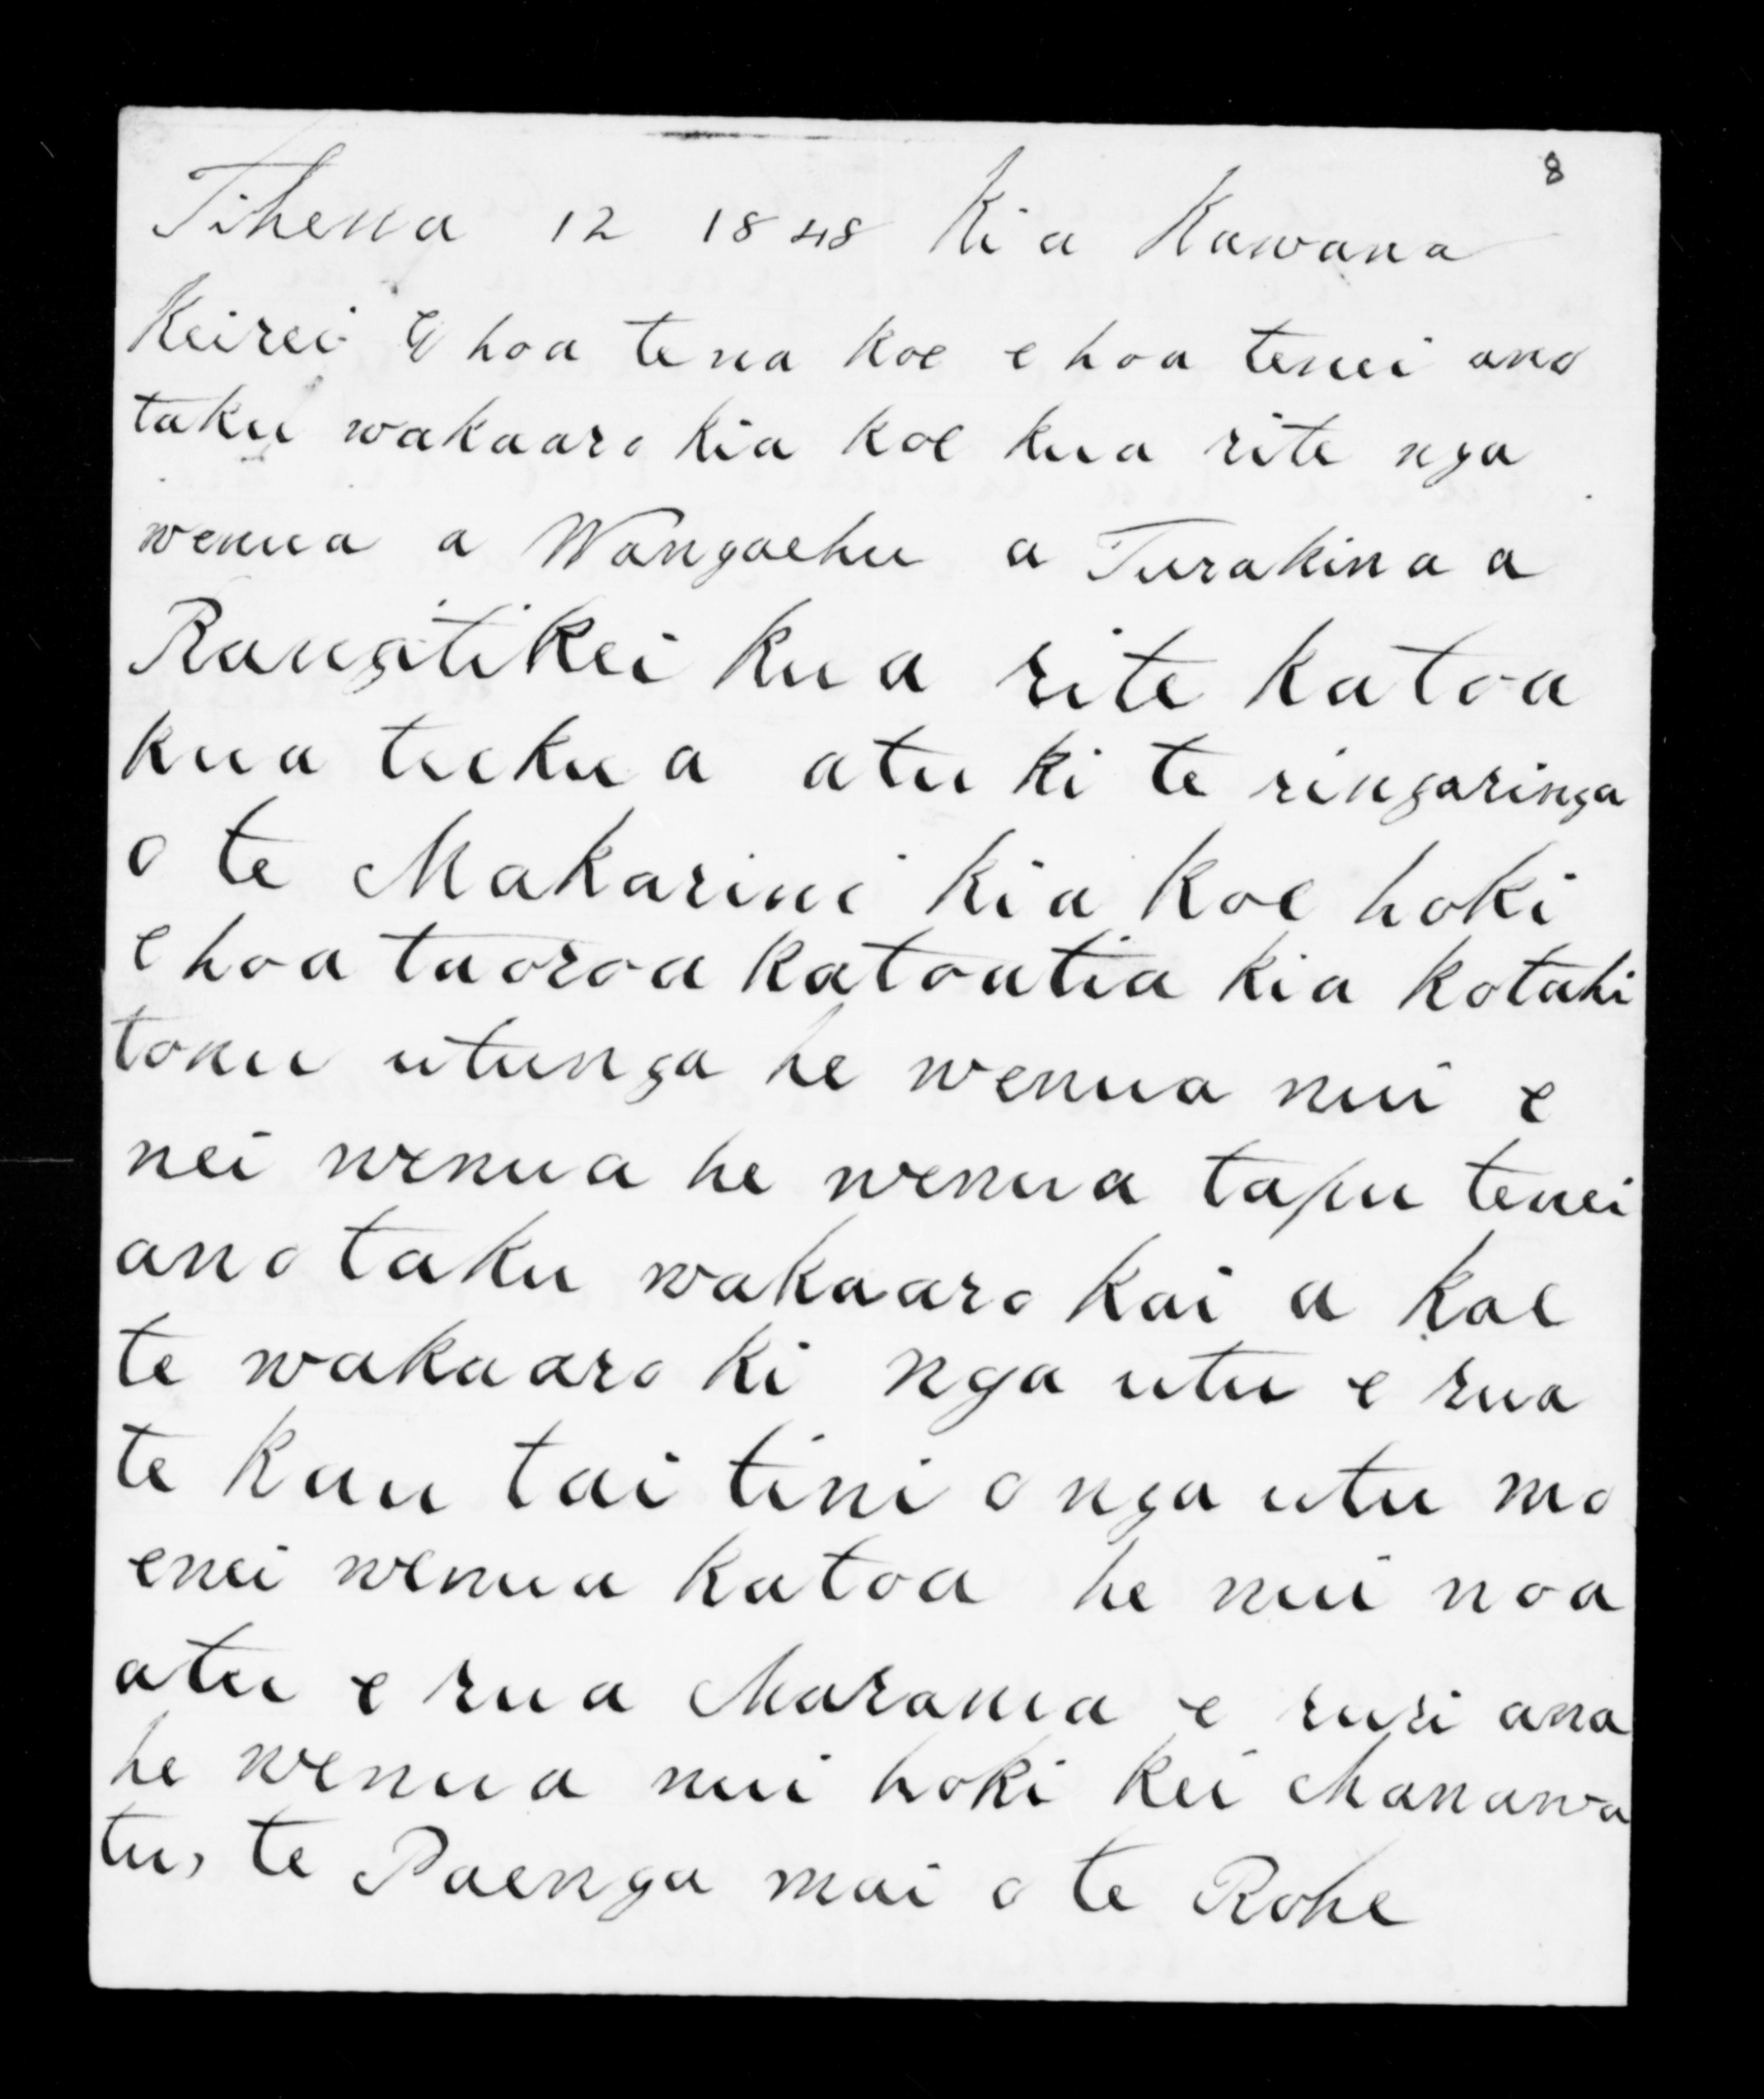 8
Tihema 12 1848 Kia Kawana
Keirei E hoa tena koe e hoa tenei ano
taku wakaaro kia koe kua rite nga
wenua a Wangaehu a Turakina a
Rangitikei kua rite katoa
kua tukua atu ki te ringaringa
o te Makarini kia koe hoki
e hoa taoroa katoatia kia kotahi
tonu utunga he wenua nui e
nei wenua he wenua tapu tenei
ano taku wakaaro kai a koe
te wakaaro ki nga utu e rua
te kau tai tini o nga utu mo
enei wenua katoa he nui noa
atu e rua Marama e ruri ana
he wenua nui hoki kei Manawa
tu, te Paenga mai o te Rohe